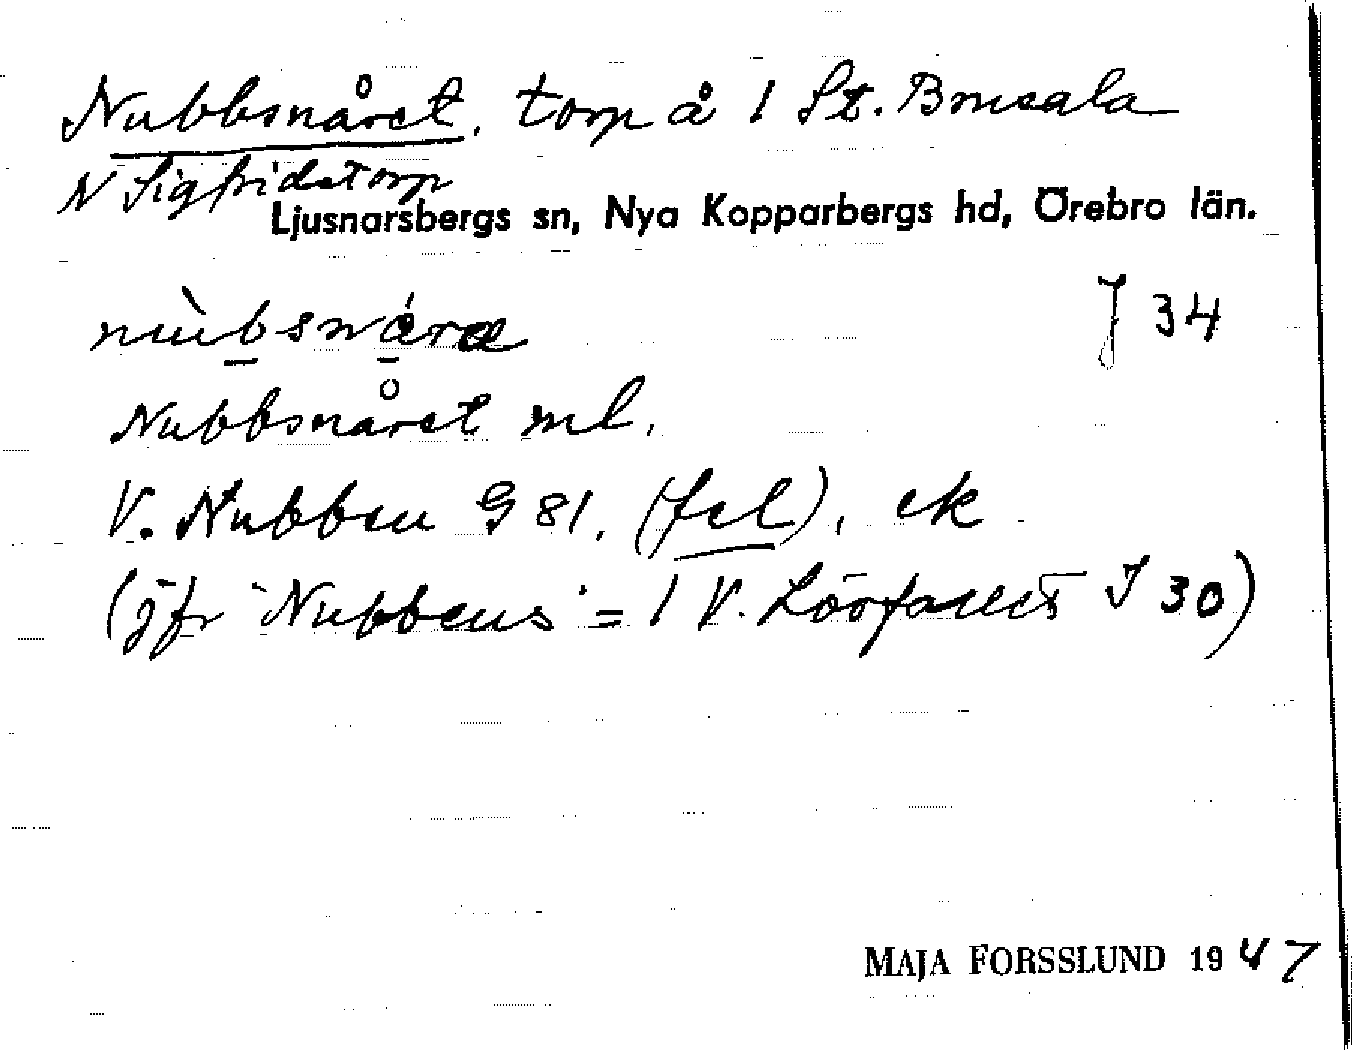 Nubbsnåret, torp å 1 St. Brusala
N Sigfridstorp
Ljusnarsbergs sn, Nya Kopparbergs hd, Örebro län.
J 34
Nubbsnåret ml.
V. Nubben G 81, (fel), ek
(jfr "Nubbens" = 1 V. Lövfallet J 30)
MAJA FORSSLUND 1947